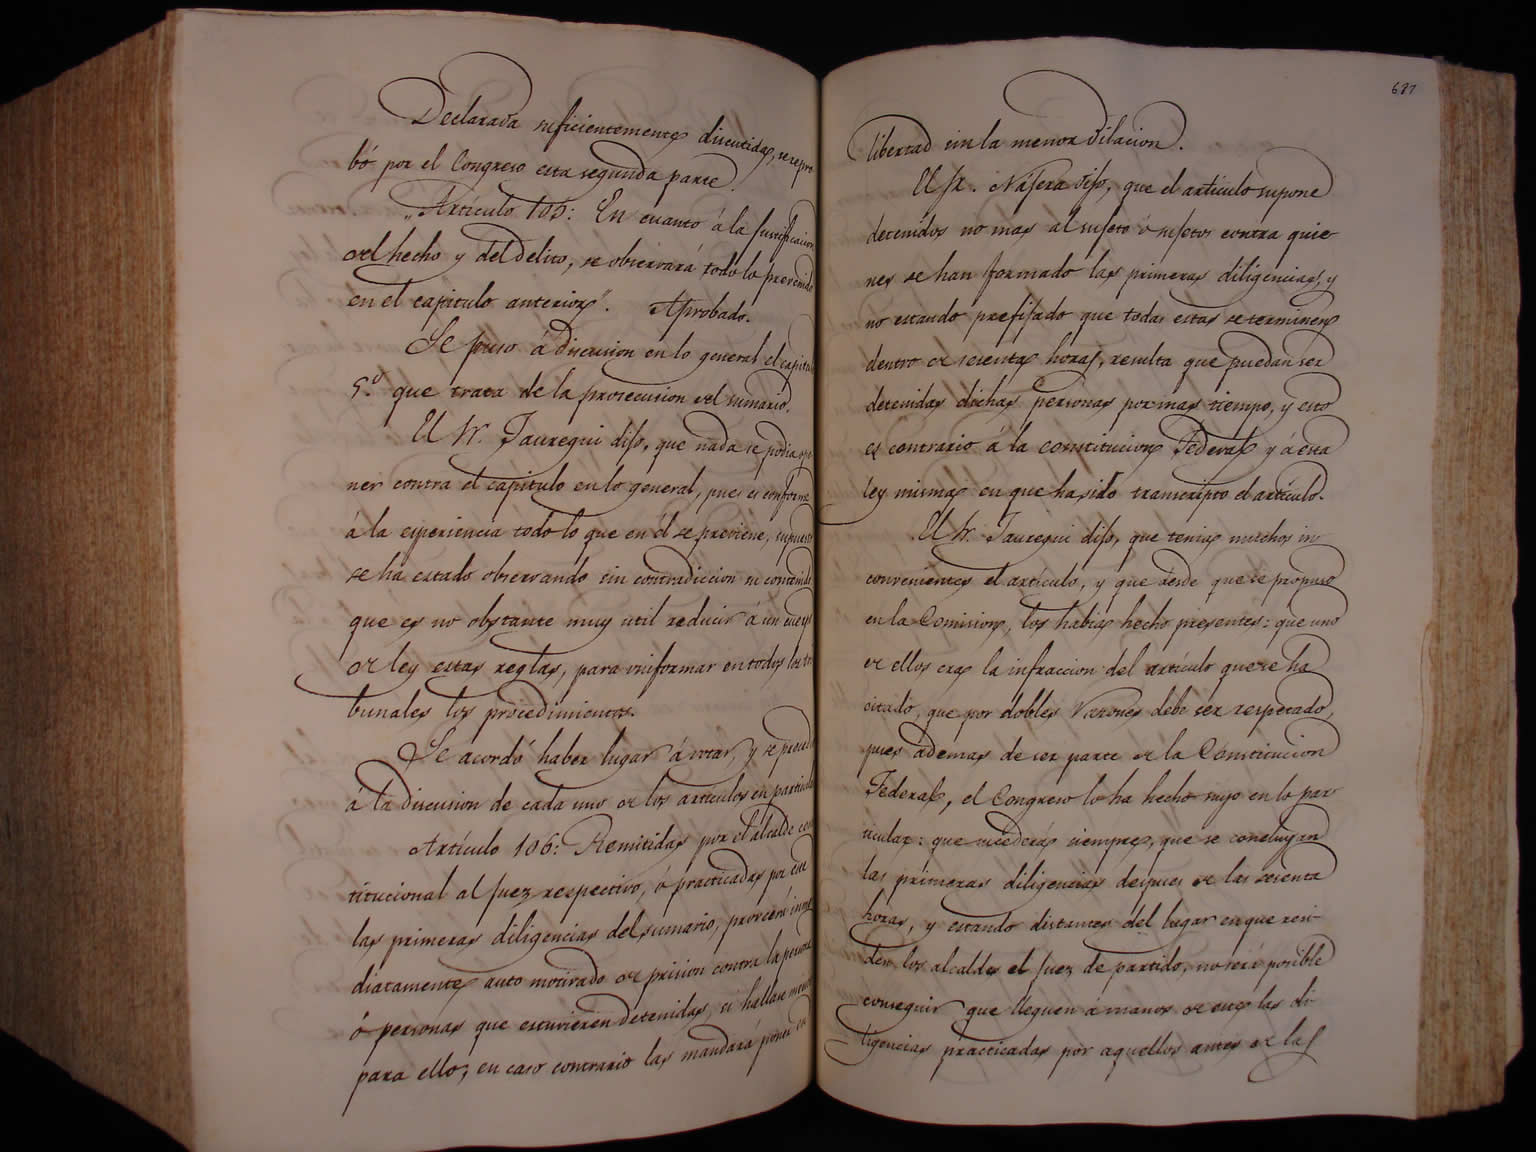 Declarada suficientemente discutida, se repro
bó por el Congreso esta segunda parte.
„Artículo 105: En cuanto á la justificacion
del hecho y del delito, se observará todo lo prevenido
en el capitulo anterior". Aprobado.
Se puso á discusion en lo general el capitulo
5.º que trata de la prosecusion del sumario.
El Sr. Jauregui dijo, que nada se podia opo
ner contra el capitulo en lo general, pues es conforme
á la esperiencia todo lo que en él se previene, supuesto
se ha estado observando sin contradiccion su contenido
que es no obstante muy util reducir á un cuerpo
de ley estas reglas, para uniformar en todos los tri
bunales los procedimientos.
Se acordó haber lugar á votar, y se procedió
á la discusion de cada uno de los articulos en particular
Artículo 106: Remitidas por el alcalde cons
titucional al Juez respectivo, ó practicadas por este
las primeras diligencias del sumario, proveerá inme
diatamente auto motivado de prision contra la persona
ó personas que estuvieren detenidas, si hallase merito
para ello; en caso contrario las mandará poner en
687
libertad sin la menor dilacion.
El Sr. Najera dijo, que el artículo supone
detenidos no mas al sujeto ó sujetos contra quie
nes se han formado las primeras diligencias, y
no estando prefijado que todas estas se terminen
dentro de sesenta horas, resulta que puedan ser
detenidas dichas personas por mas tiempo, y esto
es contrario á la constitucion Federal y á esta
ley misma en que ha sido transcripto el artículo.
El Sr. Jauregui dijo, que tenia muchos in
convenientes el artículo, y que desde que se propuso
en la Comision, los habia hecho presentes: que uno
de ellos era la infraccion del artículo que se ha
citado, que por dobles razones debe ser respetado,
pues ademas de ser parte de la Constitucion
Federal, el Congreso lo ha hecho suyo en lo par
ticular: que sucederá siempre, que se concluyan
las primeras diligencias despues de las sesenta
horas, y estando distantes del lugar en que resi
den los alcaldes el Juez de partido, no será posible
conseguir que lleguen á manos de este las di
ligencias practicadas por aquellos antes de las